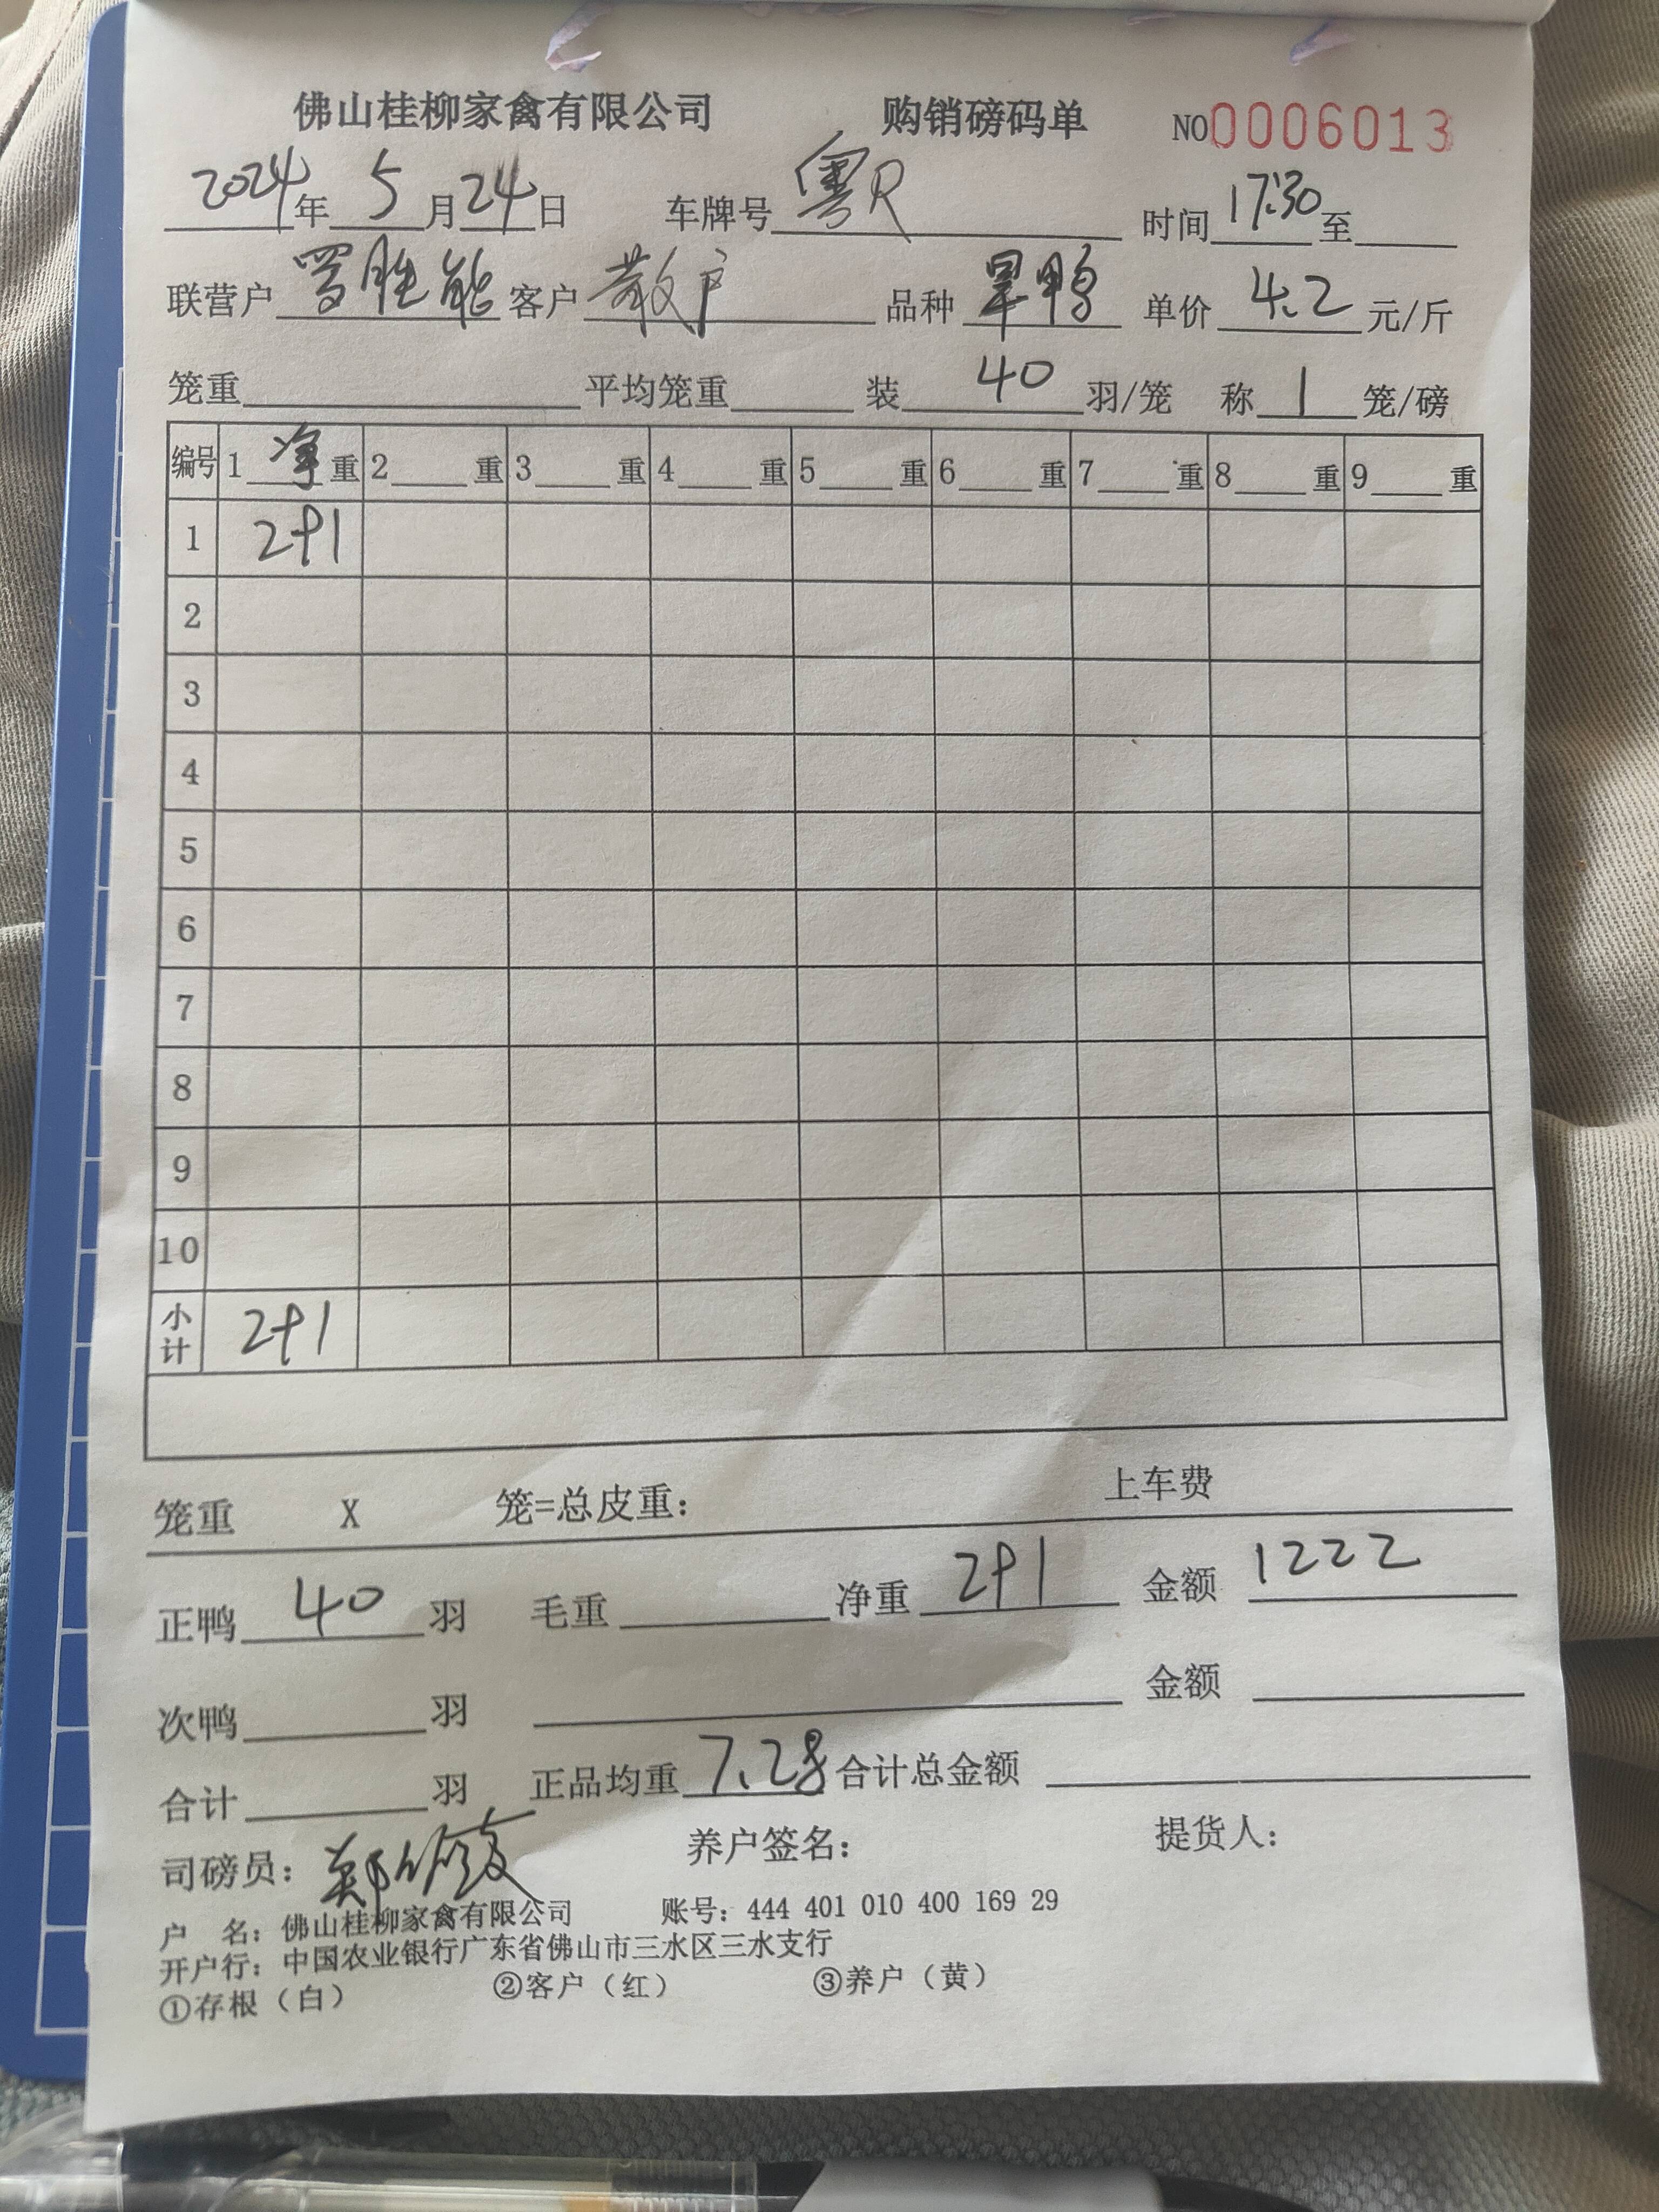 佛山桂柳家禽有限公司 购销磅码单 NO0006013
2024年5月24日 车牌号粤R 时间17:30至
联营户罗胜能客户散户 品种旱鸭 单价4.2元/斤
笼重 平均笼重 装40羽/笼 称1笼/磅
编号 1净重 2重 3重 4重 5重 6重 7重 8重 9重
1 291
2
3
4
5
6
7
8
9
10
小计 291
笼重 X 笼=总皮重： 上车费
正鸭40羽 毛重 净重291 金额1222
次鸭 羽 金额
合计 羽 正品均重7.28合计总金额
司磅员：郑 养户签名： 提货人：
户 名：佛山桂柳家禽有限公司 账号：444 401 010 400 169 29
开户行：中国农业银行广东省佛山市三水区三水支行
①存根（白） ②客户（红） ③养户（黄）